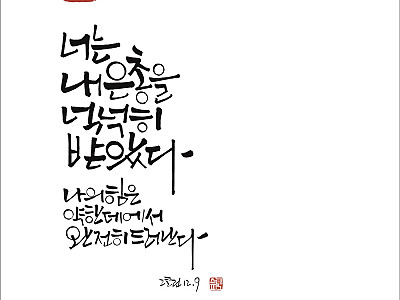 너는
내 은총을
넉넉히
받았다-
나의 힘은
약한 데에서
완전히 드러난다-
2코린 12.9